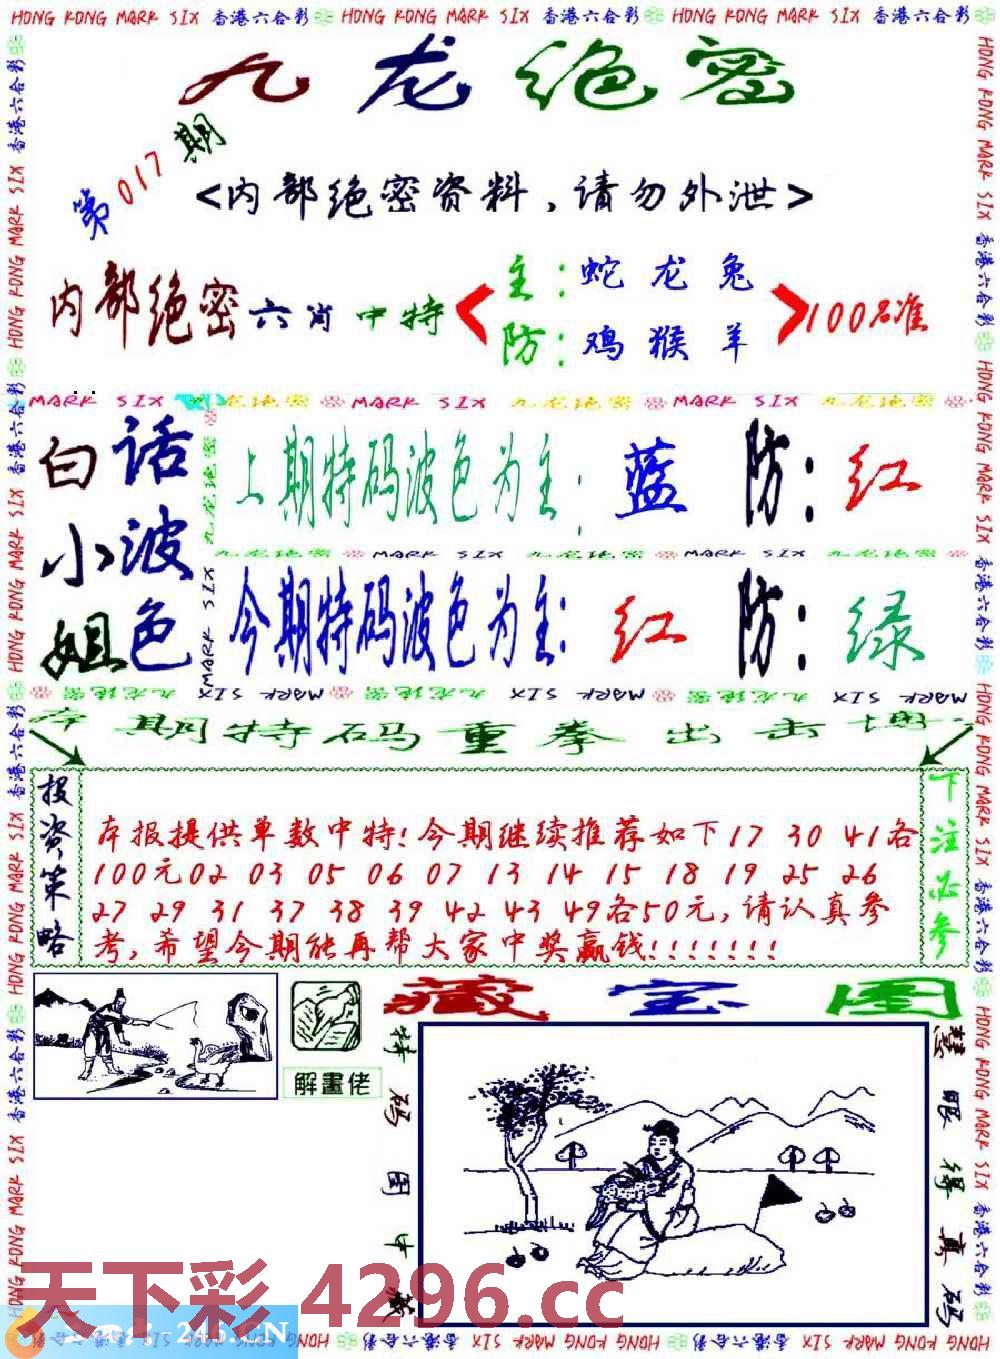 HONG KONG MARK SIX 香港六合彩 HONG KONG MARK SIX 香港六合彩 HONG KONG MARK SIX 香港六合彩
九龙绝密
第017期
<内部绝密资料,请勿外泄>
内部绝密六肖中特
主:蛇龙兔
防:鸡猴羊
100%准
MARK SIX 九龙绝密 MARK SIX 九龙绝密 MARK SIX 九龙绝密
白小姐
话波色
上期特码波色为主:蓝 防:红
九龙绝密 MARK SIX 九龙绝密 MARK SIX 九龙绝密
今期特码波色为主:红 防:绿
MARK SIX 九龙绝密 MARK SIX 九龙绝密 MARK SIX
本期特码重拳出击
投资策略
本报提供单数中特!今期继续推荐如下17 30 41各
100元02 03 05 06 07 13 14 15 18 19 25 26
27 29 31 37 38 39 42 43 49各50元,请认真参
考,希望今期能再帮大家中奖赢钱!!!!!!!
下注必参
解畫佬
藏宝图
特码图中藏
慧眼得真码
天下彩 4296.cc
246.CN
HONG KONG MARK SIX 香港六合彩 HONG KONG MARK SIX 香港六合彩